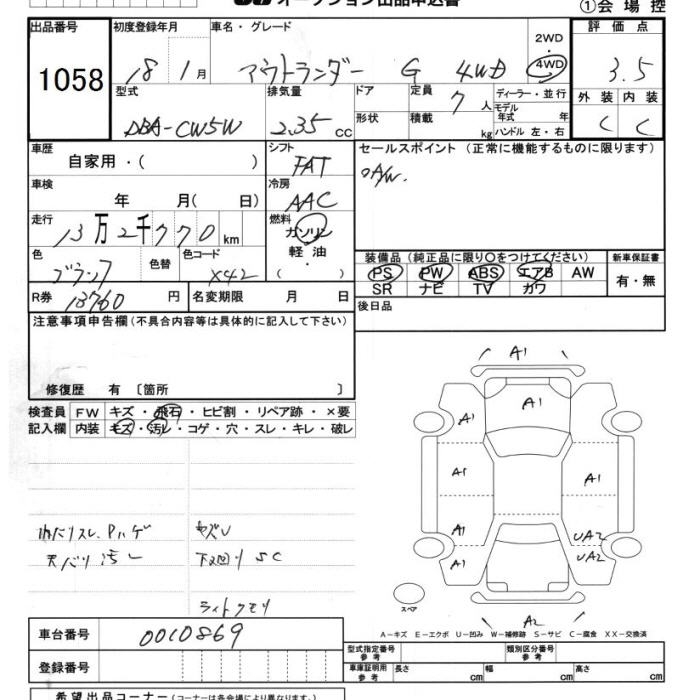 ①会 場 控
出品番号
1058
初度登録年月
18 1月
車名・グレード
アウトランダー G 4WD
2WD
4WD
評 価 点
3.5
外 装 内 装
C C
型式
DBA-CW5W
排気量
2.35 CC
ドア
形状
定員
7 人
積載
kg
ディーラー・並行
モデル年式 年
ハンドル 左・右
車歴
自家用・( )
シフト
FAT
セールスポイント (正常に機能するものに限ります)
○A/W.
車検
年 月( 日)
冷房
AAC
走行
13万2千770km
燃料
ガソリン
軽 油
( ・ )
色
色替
色コード
X42
装備品 (純正品に限り○をつけてください)
PS PW ABS エアB AW
SR ナビ TV カワ
新車保証書
有・無
R券
13760 円
名変期限 月 日
後日品
注意事項申告欄(不具合内容等は具体的に記入して下さい)
修復歴 有 〔箇所 〕
検査員
記入欄
FW キズ・飛石・ヒビ割・リペア跡・×要
内装 キズ・汚レ・コゲ・穴・スレ・キレ・破レ
天バリ汚レ
下廻りSC
ライトクモリ
A1
A1
A1
A1
A1
A1
A1
UA2
UA2
A2
スペア
A-キズ E-エクボ U-凹み W-補修跡 S-サビ C-腐食 XX-交換済
車台番号
0010869
登録番号
型式指定番号
参 考
類別区分番号
参 考
車庫証明用
参 考
長さ cm
幅 cm
高さ cm
希望出品コーナー(コーナーは各会場により異なります。)